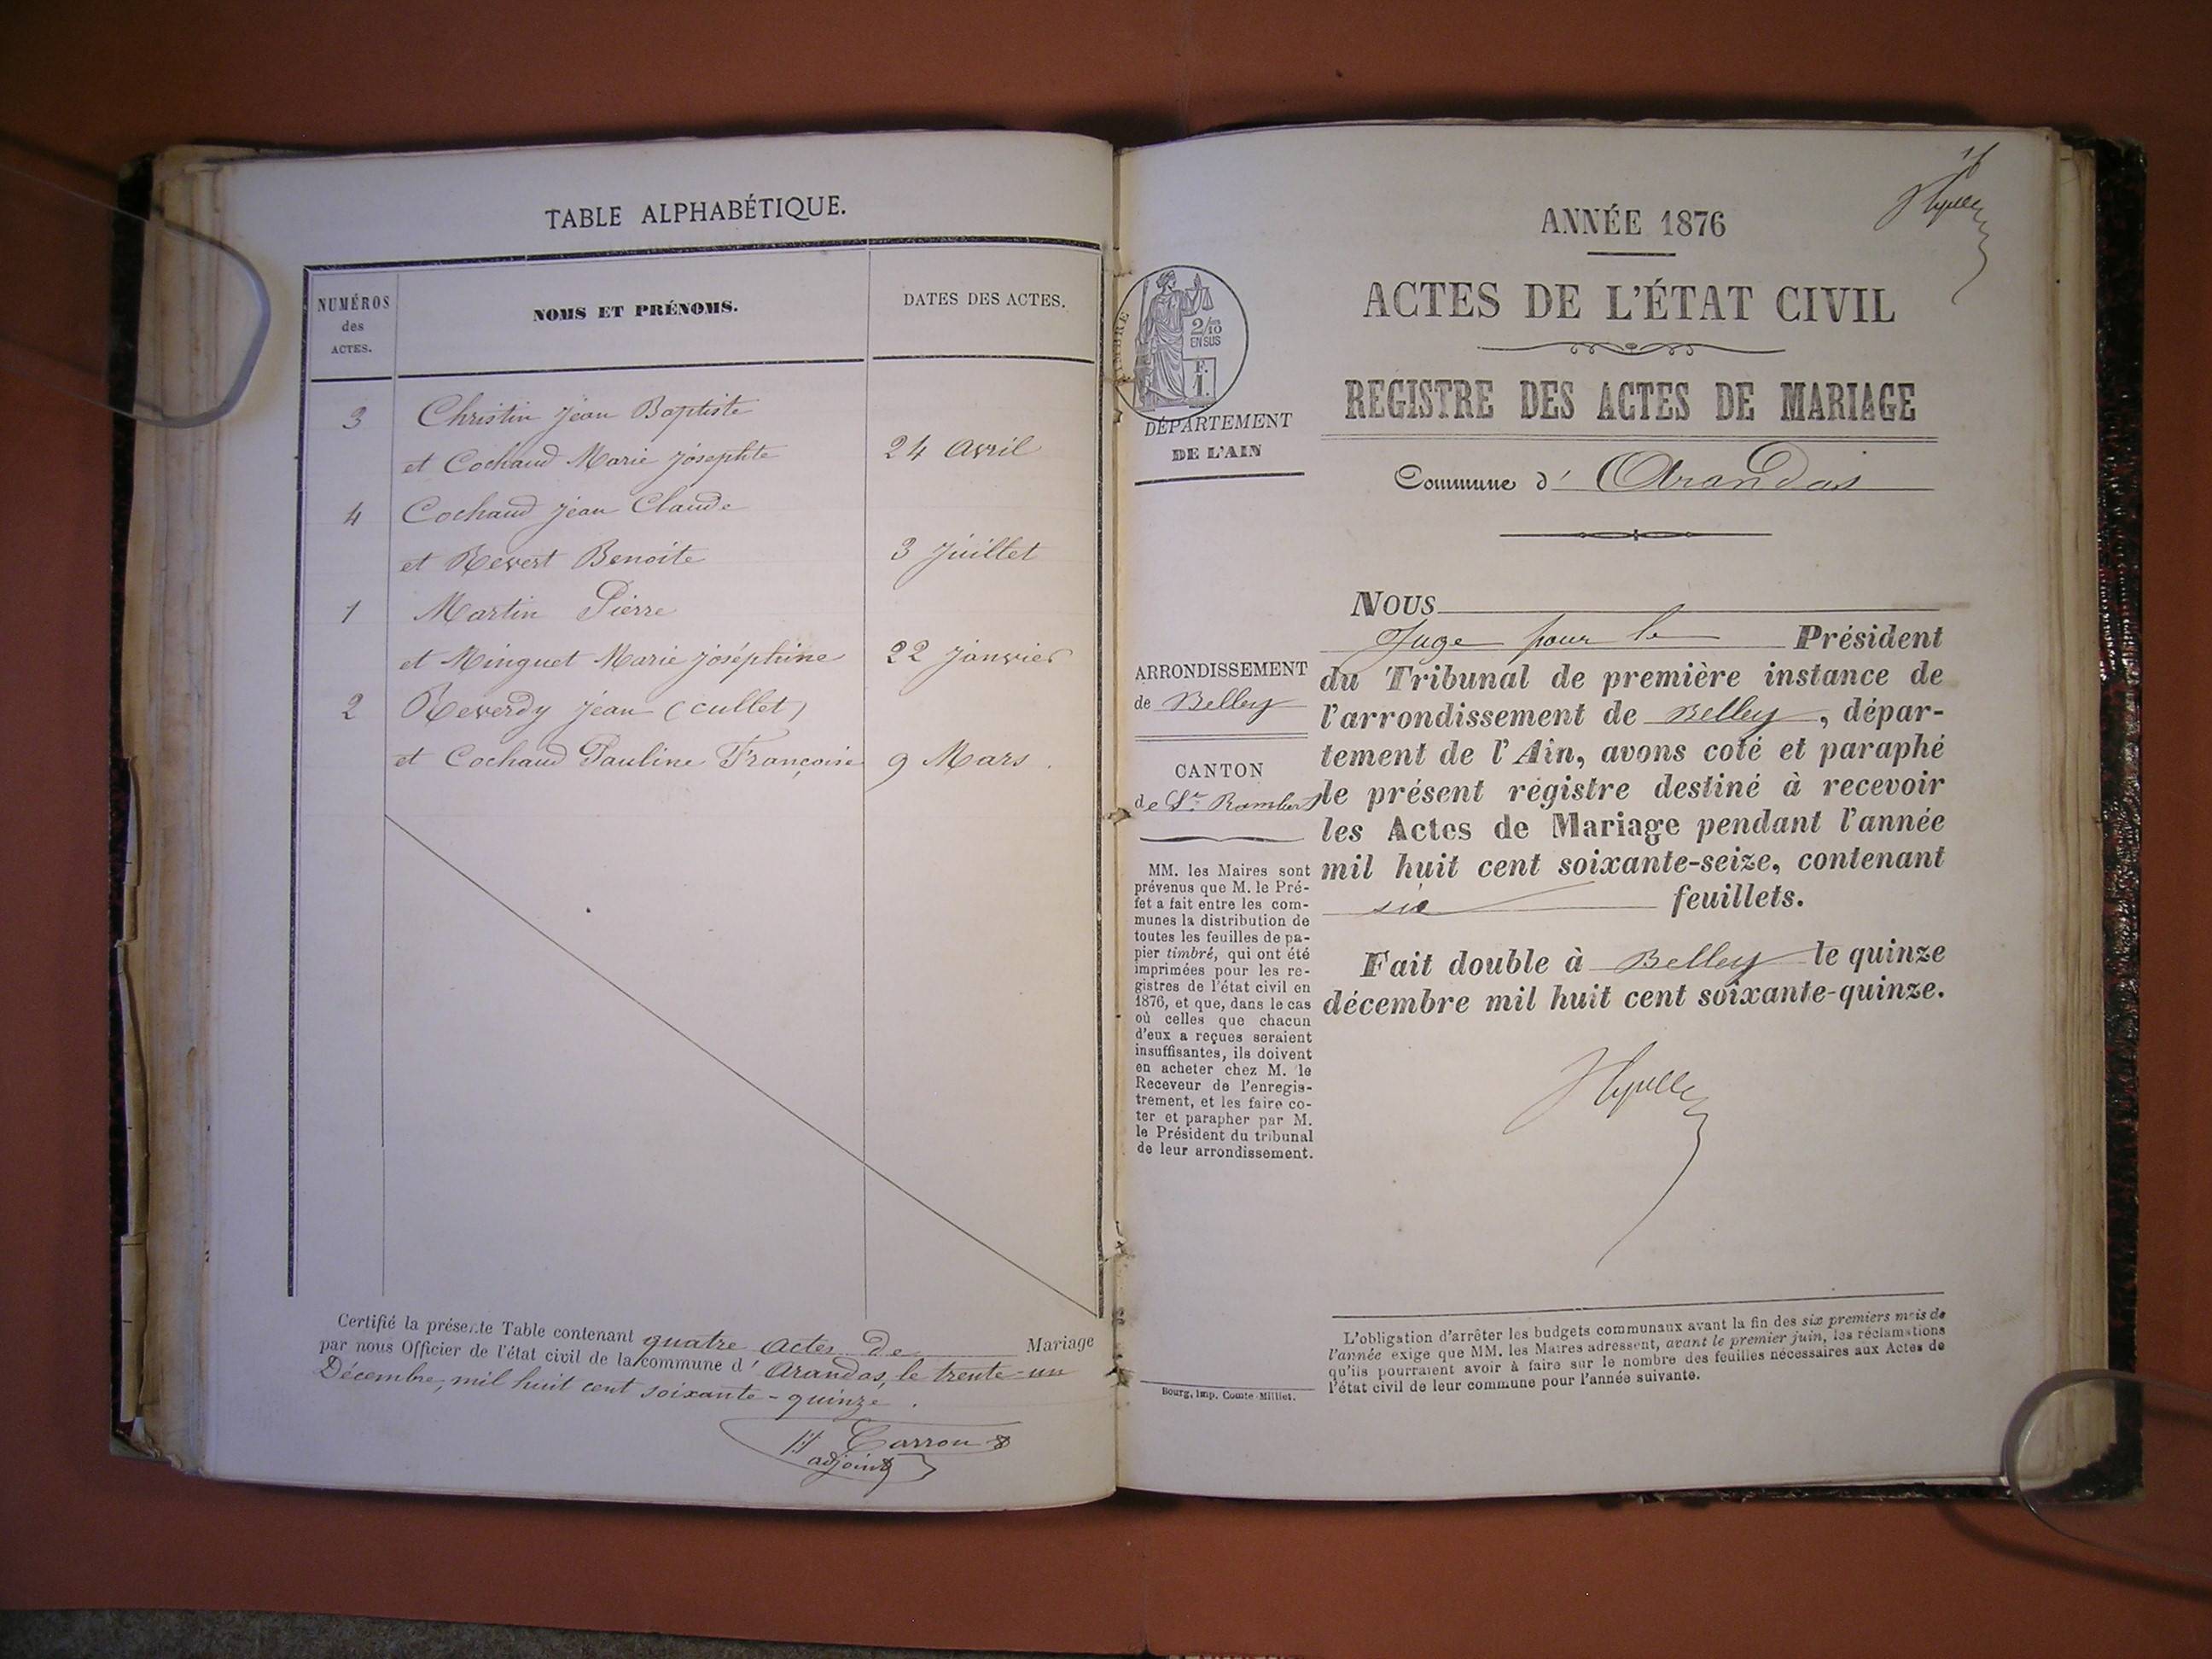 TABLE ALPHABÉTIQUE.
NUMÉROS
des
ACTES.
NOMS ET PRÉNOMS.
DATES DES ACTES.
3 Christin Jean Baptiste
et Cochaud Marie Josephte 24 Avril
4 Cochaud Jean Claude
et Revert Benoite 3 Juillet
1 Martin Pierre
et Minguet Marie joséphine 22 Janvier
2 Reverdy Jean (cullet)
et Cochaud Pauline Françoise 9 Mars.
Certifié la présente Table contenant quatre actes de Mariage
par nous Officier de l'état civil de la commune d' Arandas, le trente-un
Décembre, mil huit cent soixante-quinze.
Carron
adjoint
ANNÉE 1876
ACTES DE L'ÉTAT CIVIL
REGISTRE DES ACTES DE MARIAGE
Commune d' Arandas
TIMBRE
2/10
EN SUS
F.
1.
DÉPARTEMENT
DE L'AIN
ARRONDISSEMENT
de Belley
CANTON
de St. Rambert
MM. les Maires sont
prévenus que M. le Pré-
fet a fait entre les com-
munes la distribution de
toutes les feuilles de pa-
pier timbré, qui ont été
imprimées pour les re-
gistres de l'état civil en
1876, et que, dans le cas
où celles que chacun
d'eux a reçues seraient
insuffisantes, ils doivent
en acheter chez M. le
Receveur de l'enregis-
trement, et les faire co-
ter et parapher par M.
le Président du tribunal
de leur arrondissement.
Bourg, Imp. Comte-Milliet.
Nous
Juge pour le Président
du Tribunal de première instance de
l'arrondissement de Belley, dépar-
tement de l'Ain, avons coté et paraphé
le présent régistre destiné à recevoir
les Actes de Mariage pendant l'année
mil huit cent soixante-seize, contenant
six feuillets.
Fait double à Belley le quinze
décembre mil huit cent soixante-quinze.
L'obligation d'arrêter les budgets communaux avant la fin des six premiers mois de
l'année exige que MM. les Maires adressent, avant le premier juin, les réclamations
qu'ils pourraient avoir à faire sur le nombre des feuilles nécessaires aux Actes de
l'état civil de leur commune pour l'année suivante.